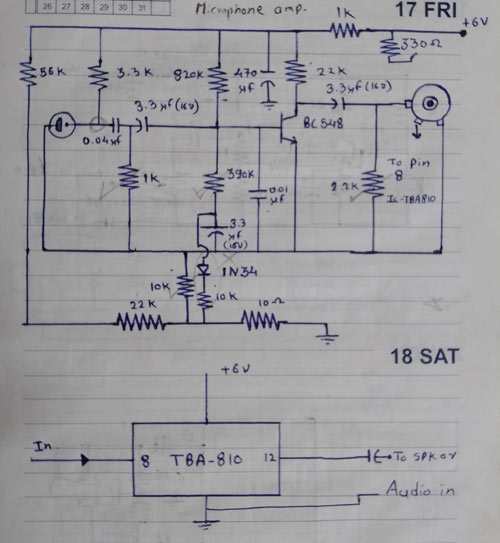 26 27 28 29 30 31
Microphone amp.
17 FRI
1K
+6V
330Ω
56K
3.3K
820K
470
µf
22K
3.3µf(16V)
3.3µf(16V)
BC548
0.04µf
1K
390K
0.01
µf
2.2K
To Pin
8
IC-TBA810
3.3
µf
(16V)
1N34
10K
10K
22K
10Ω
18 SAT
+6V
In
8 TBA-810 12
To SPKOY
Audio in